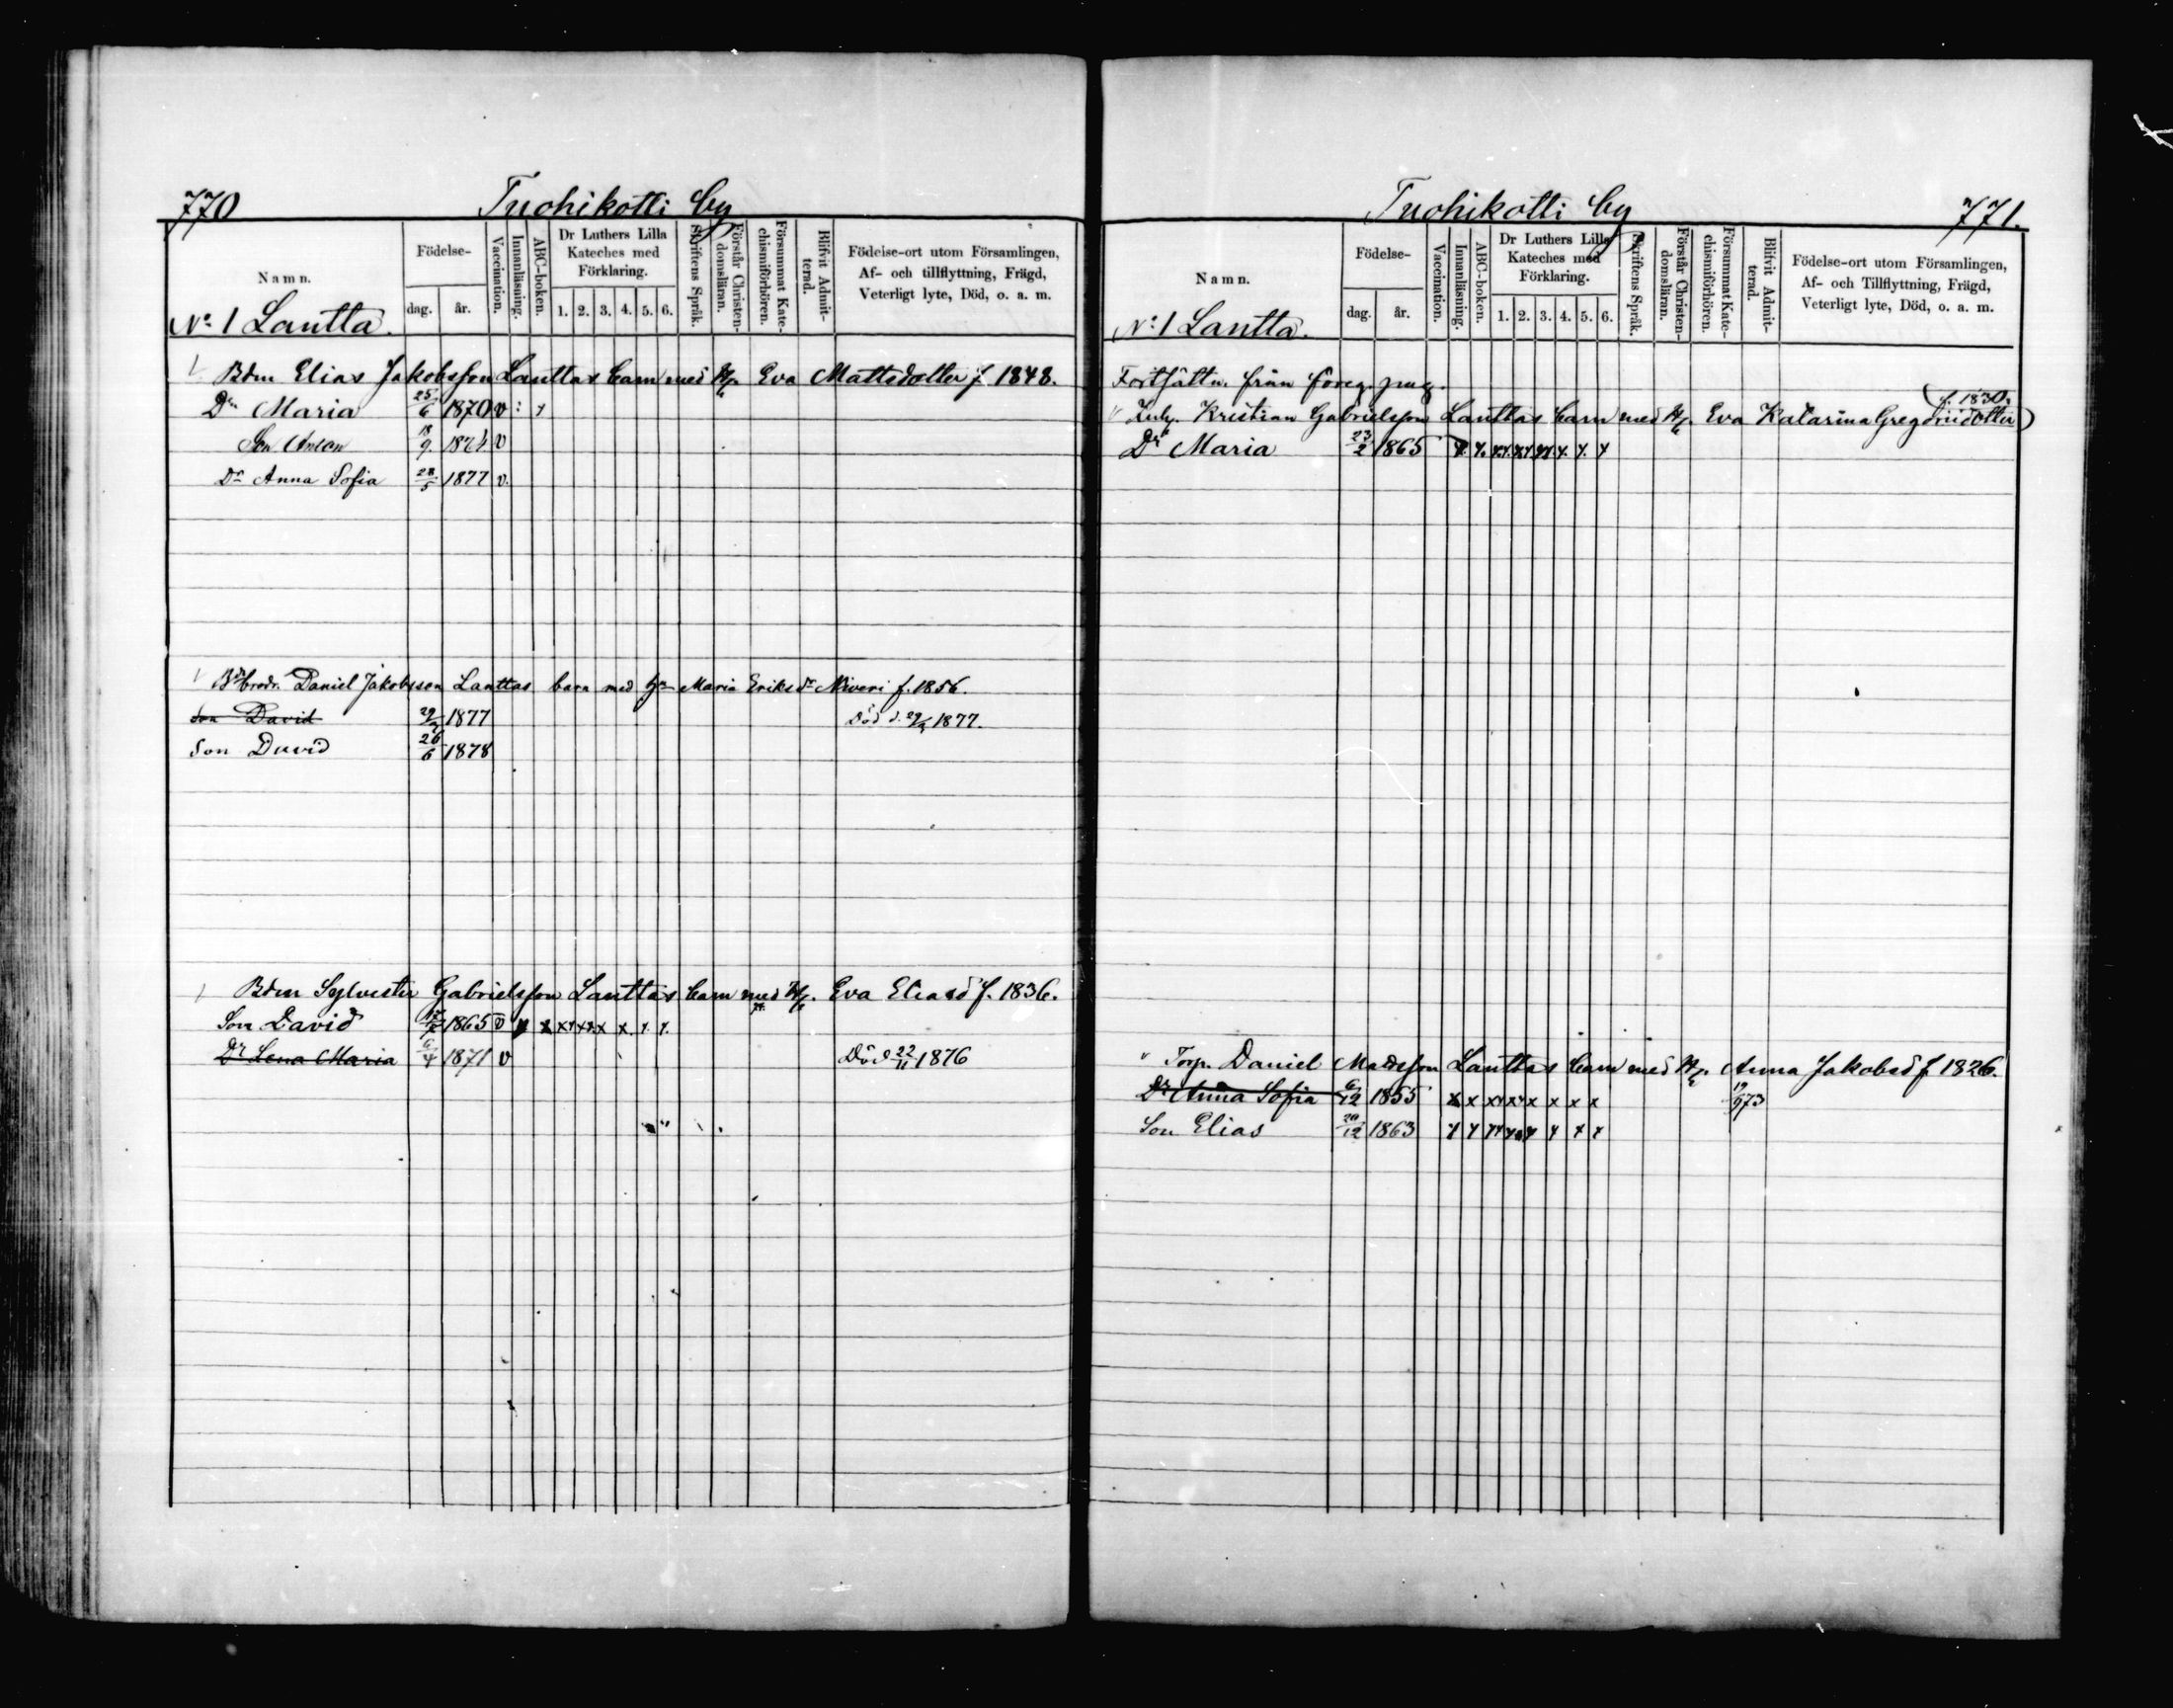 770 Tuohikotti by
Namn. Födelse- dag. år. Vaccination. Innanläsning. ABC-boken. Dr Luthers Lilla Kateches med Förklaring. 1. 2. 3. 4. 5. 6. Skriftens Språk. Förstår Christen-domsläran. Försummat Kate-chismiförhören. Blifvit Admit-terad. Födelse-ort utom Församlingen, Af- och tillflyttning, Frägd, Veterligt lyte, Död, o. a. m.
No. 1 Lantta.
Bdm Elias Jakobsson Lanttas barn med H. Eva Mattsdotter f 1848.
Dr Maria 25/6 1870 v
Son Anton 18/9 1874 v
Dr Anna Sofia 28/5 1877 v.
Bdbrodr. Daniel Jakobsson Lanttas barn med Hu Maria Eriksdr Niveri f. 1856.
Son David 1877 Död d. 1877.
Son David 26/6 1878
Bdm Sylvester Gabrielsson Lanttas barn med H. Eva Eliasd f. 1836.
Son David 1865 v x x x x x x x x. x. x.
Dr Lena Maria 6/4 1871 v Död 22/11 1876
Tuohikotti by 771.
Namn. Födelse- dag. år. Vaccination. Innanläsning. ABC-boken. Dr Luthers Lilla Kateches med Förklaring. 1. 2. 3. 4. 5. 6. Skriftens Språk. Förstår Christen-domsläran. Försummat Kate-chismiförhören. Blifvit Admit-terad. Födelse-ort utom Församlingen, Af- och Tillflyttning, Frägd, Veterligt lyte, Död, o. a. m.
No. 1 Lantta.
Fortsättn. från föreg. pag.
f. 1830.
Inhy. Kristian Gabrielsson Lanttas barn med H. Eva Katarina Gregoriidotter)
Dr Maria 23/2 1865 x. x. x.x. x.x x.x. x. x. x
Torp. Daniel Mattsson Lanttas barn med H. Anna Jakobsd f 1826.
Dr Anna Sofia 6/12 1855 x x xx xx x x x x 19/9 73
Son Elias 20/12 1863 x x xx xx x x x x